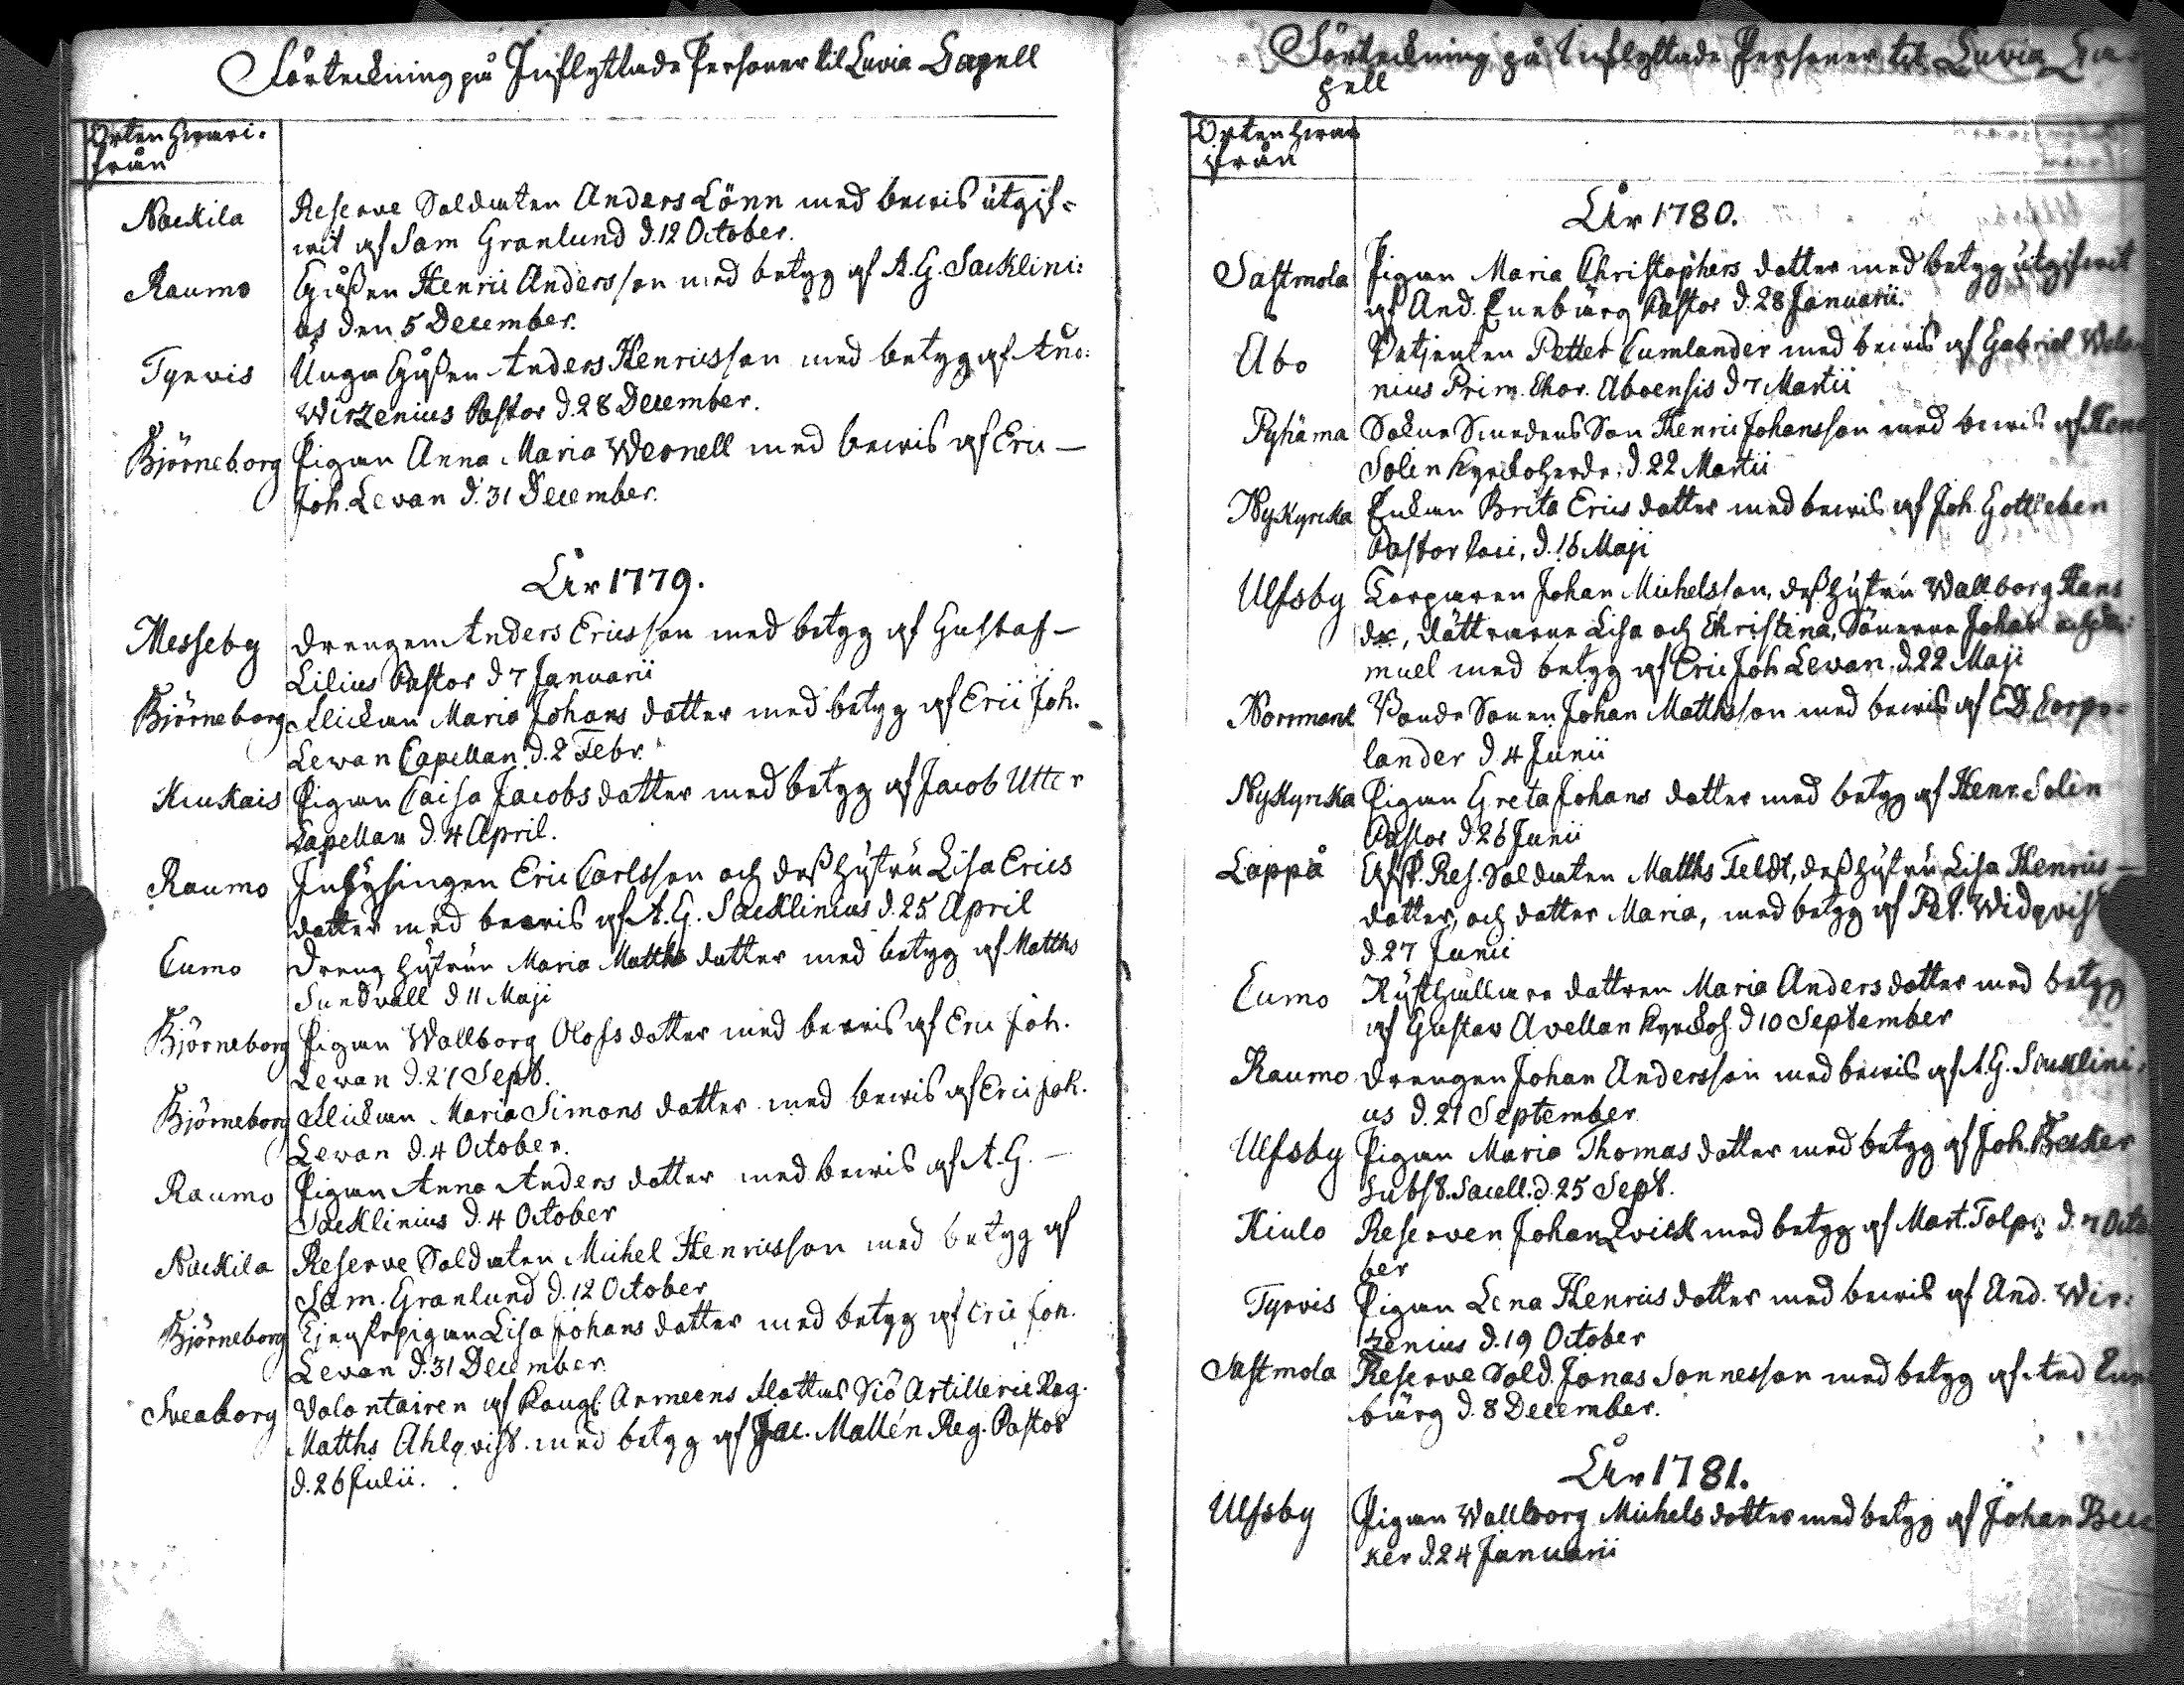 Förteckning på Inflyttade Personer til Luvia Capell
Orten hvari-
från
Nackila Reserve Soldaten Anders Lönn med bewis utgif-
wit af Sam Granlund d. 12 October.
Raumo Gåßen Henric Andersson med betyg af A. G. Sacklini:
us den 5 December.
Tyrvis Unga Gåßen Anders Henricsson med betyg af
Wirzenius Pastor d. 28 December.
Björneborg Pigan Anna Maria Wernell med bewis af Eric
Joh. Levan d. 31 December.
År 1779.
Messeby Drengen Anders Ericsson med betyg af Gustaf
Lilius Pastor d 7 Januarii
Björneborg Flickan Maria Johans dotter med betyg af Eric Joh.
Levan Capellan d. 2 Febr.
Kiukais Pigan Caisa Jacobs dotter med betyg af Jacob Utter
Capellan d. 4 April.
Raumo Inhysingen Eric Carlsson och deß hustru Lisa Erics
dotter med bewis af A. G. Sacklinius d. 25 April
Cumo Dreng hustrun Maria Matths dotter med betyg af Matths
Sundvall d 11 Maji
Björneborg Pigan Wallborg Olofs dotter med bewis af Eric Joh.
Levan d. 21 Sept.
Björneborg Flickan Maria Simons dotter med bewis af Eric Joh.
Levan d. 4 October.
Raumo Pigan Anna Anders dotter med bewis af A. G.
Sacklinius d. 4 October
Nackila Reserve Soldaten Michel Henricsson med betyg af
Sam. Granlund d. 12 October
Björneborg Tjenstepigan Lisa Johans dotter med betyg af Eric Joh.
Levan d. 31 December
Sveaborg Volontairen af Kongl. Armeens Flottas Siö Artillerie Reg.
Matths Ahlqvist med betyg af Jac. Mallén Reg. Pastor
d. 26 Julii.
Förteckning på Inflyttade Personer til Luvia Ca-
pell
Orten hvar
ifrån
År 1780.
Sastmola Pigan Maria Christophers dotter med betyg utgifwit
af And. Eneburg Pastor d. 28 Januarii.
Abo Betjenten Petter Cumlander med bewis af Gabriel
nius Prim. Chor. Aboensis d 7 Martii
Pyhäma Sokne Smedens Son Henric Johansson med bewis af
Solin Kyrckoherde d. 22 Martii
Nykyrcka Enkan Brita Erics dotter med bewis af Joh. Gottleben
Pastor loci, d. 16 Maji
Ulfsby Torparen Johan Michelsson, deß hustru Wallborg Hans
dr, döttrarne Lisa och Christina, Sönerne Johan
muel med betyg af Eric Joh Levan. d. 22 Maji
Norrmark Bonde Sonen Johan Matthsson med bewis af
lander d 4 Junii
Nykyrcka Pigan Greta Johans dotter med betyg af Henr. Solin
Pastor d 26 Junii
Lappå Afsk. Res. Soldaten Matths Feldt, deß hustru Lisa Henrics
dotter, och dotter Maria, med betyg af Pet. Widqvist
d. 27 Junii
Cumo Rusthållare dottren Maria Anders dotter med betyg
af Gustav Avellan Kyrckoh. d 10 September
Raumo Drengen Johan Andersson med bewis af A. G. Sacklini-
us d. 21 September
Ulfsby Pigan Maria Thomas dotter med betyg af Joh. Becker
Subst. Sacell. d. 25 Sept.
Kiulo Reserven Johan Qvick med betyg af Mart. Tolpo d. 7 Octo
ber
Tyrvis Pigan Lena Henrics dotter med bewis af And. Wir:
zenius d. 19 October
Sastmola Reserve Sold. Jonas Sonnesson med betyg af And Ene
burg d. 8 December.
År 1781.
Ulfsby Pigan Wallborg Michels dotter med betyg af Johan Bec
ker d. 24 Januarii